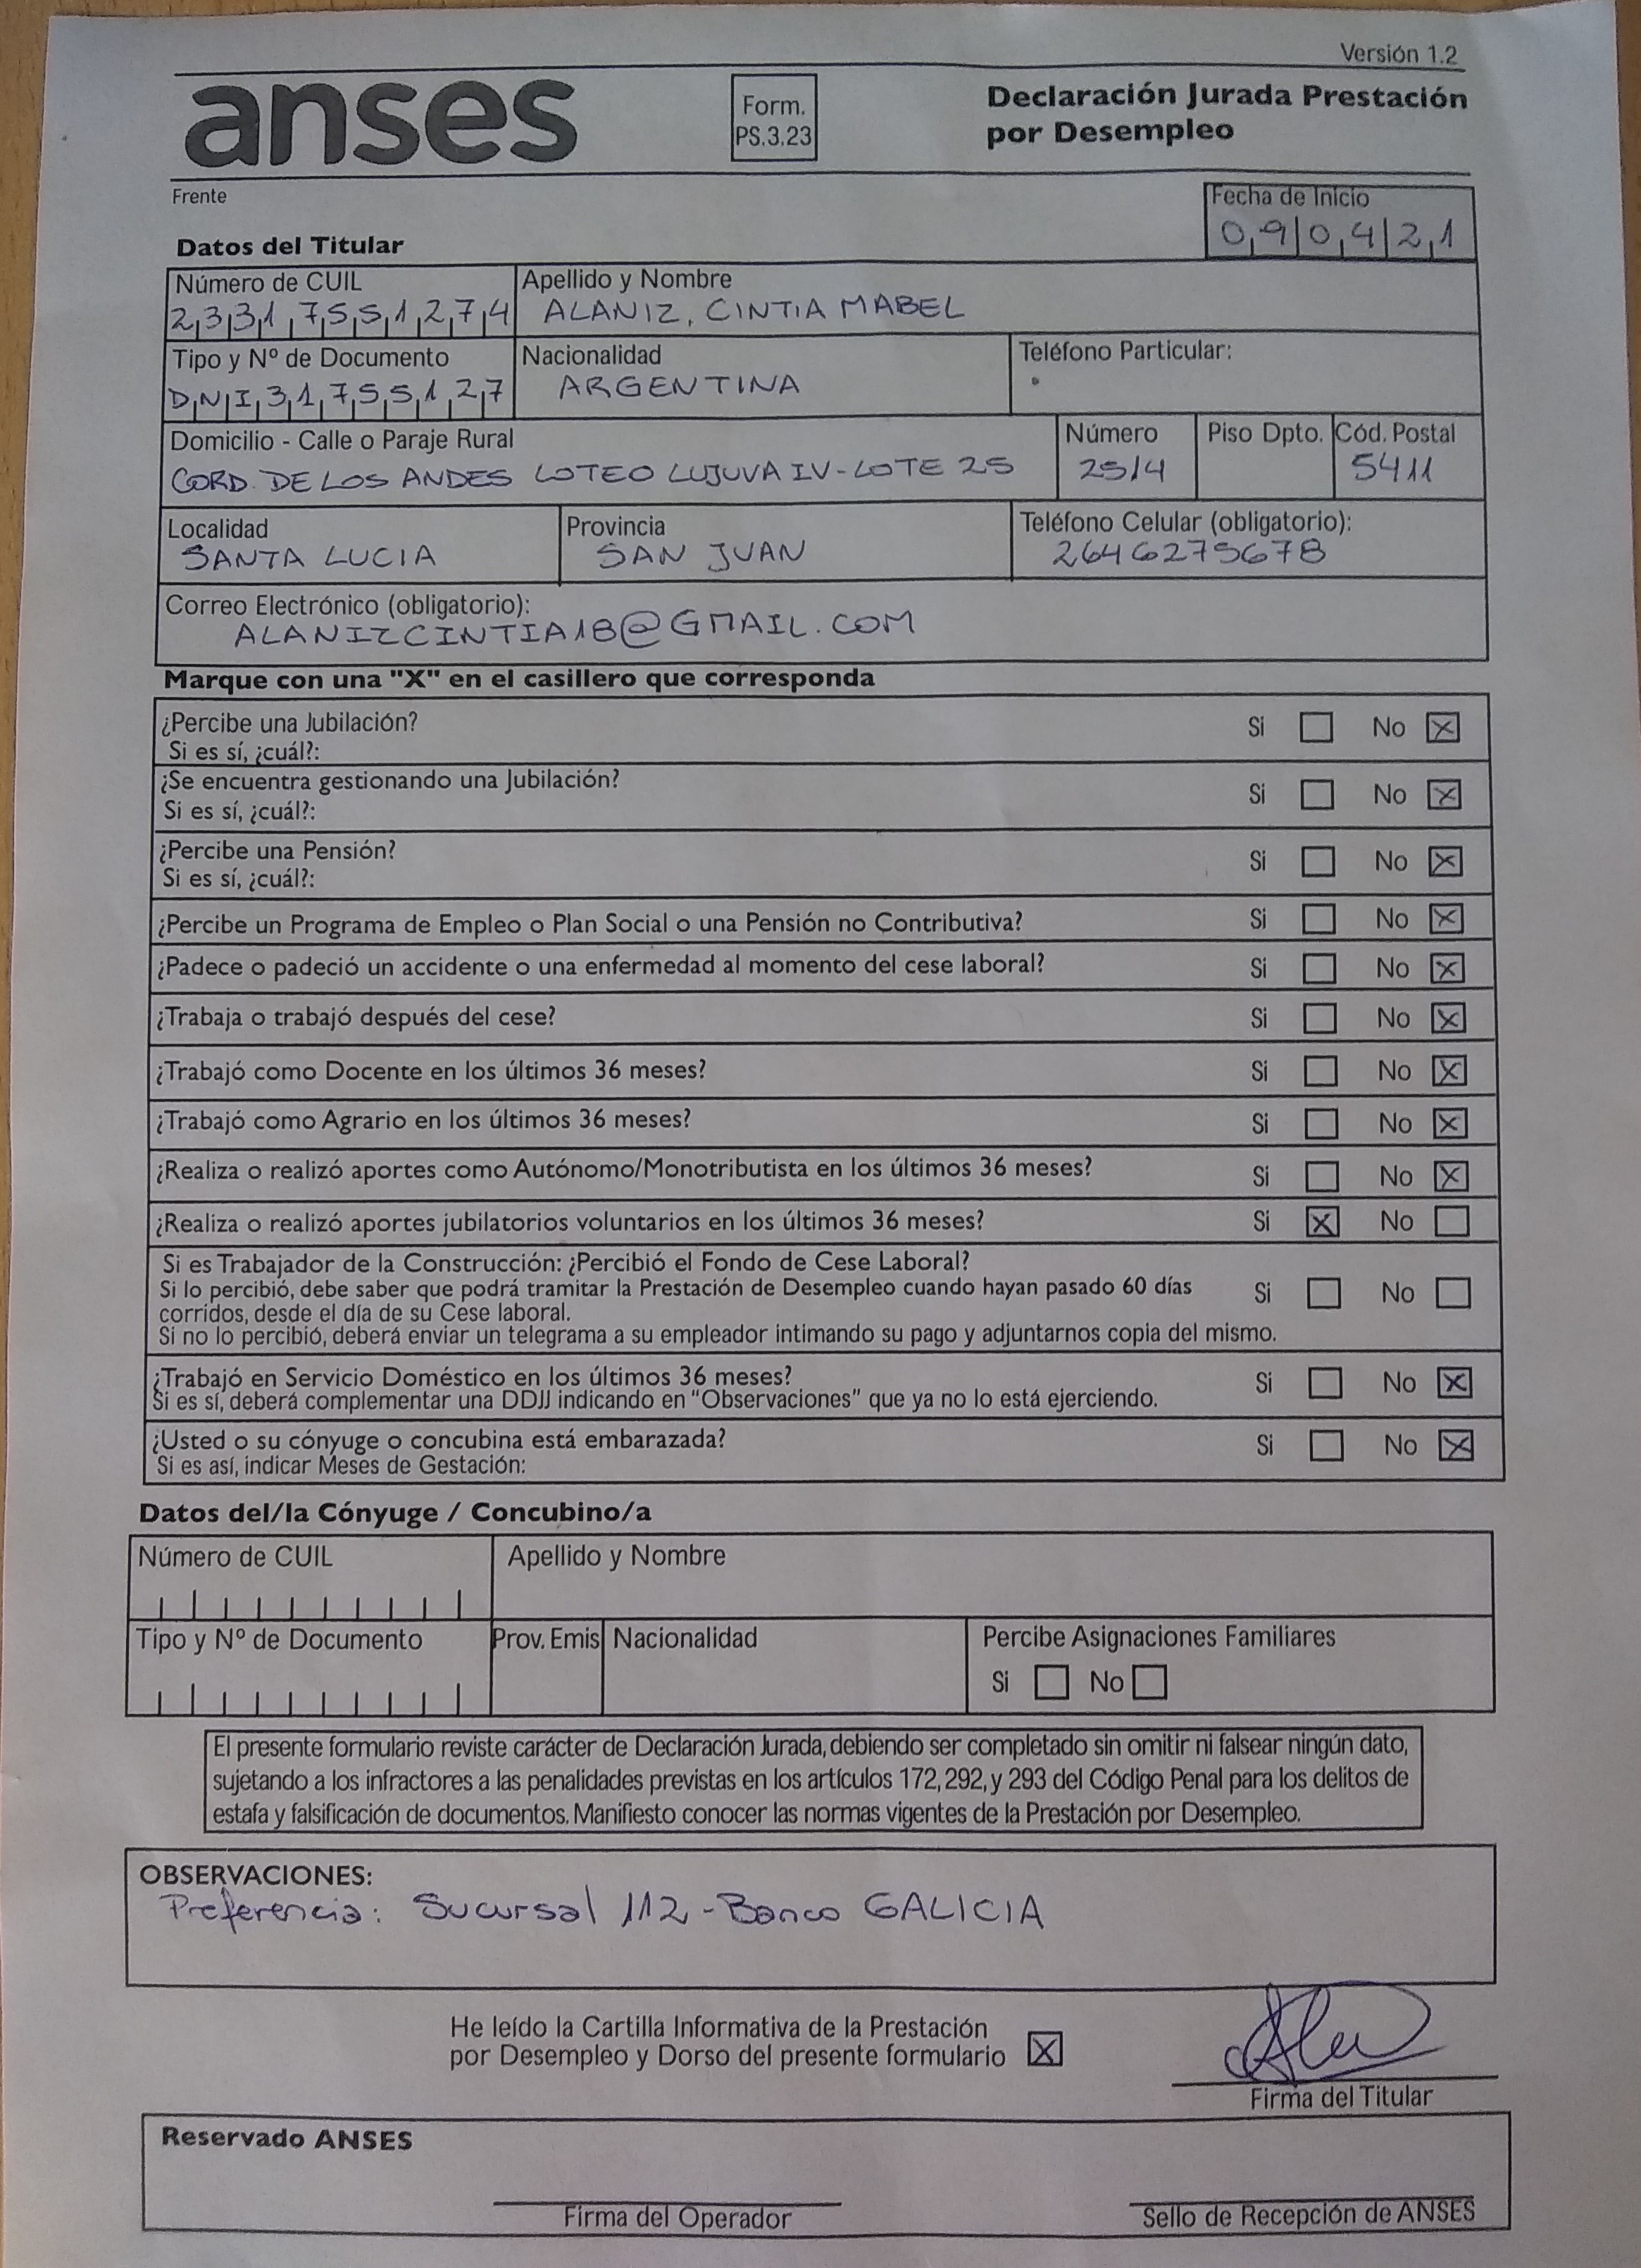 Versión 1.2
anses
Form.
PS.3.23
Declaración Jurada Prestación
por Desempleo
Frente
Fecha de Inicio
09|04|21
Datos del Titular
Número de CUIL
23317551274
Apellido y Nombre
ALANIZ, CINTIA MABEL
Tipo y Nº de Documento
DNI31755127
Nacionalidad
ARGENTINA
Teléfono Particular:
Domicilio - Calle o Paraje Rural
CORD. DE LOS ANDES LOTEO LUJUVA IV-LOTE 25
Número
2514
Piso Dpto.
Cód. Postal
5411
Localidad
SANTA LUCIA
Provincia
SAN JUAN
Teléfono Celular (obligatorio):
2646275678
Correo Electrónico (obligatorio):
ALANIZCINTIA18@GMAIL.COM
Marque con una "X" en el casillero que corresponda
¿Percibe una Jubilación? Si No X
Si es sí, ¿cuál?:
¿Se encuentra gestionando una Jubilación? Si No X
Si es sí, ¿cuál?:
¿Percibe una Pensión? Si No X
Si es sí, ¿cuál?:
¿Percibe un Programa de Empleo o Plan Social o una Pensión no Contributiva? Si No X
¿Padece o padeció un accidente o una enfermedad al momento del cese laboral? Si No X
¿Trabaja o trabajó después del cese? Si No X
¿Trabajó como Docente en los últimos 36 meses? Si No X
¿Trabajó como Agrario en los últimos 36 meses? Si No X
¿Realiza o realizó aportes como Autónomo/Monotributista en los últimos 36 meses? Si No X
¿Realiza o realizó aportes jubilatorios voluntarios en los últimos 36 meses? Si X No
Si es Trabajador de la Construcción: ¿Percibió el Fondo de Cese Laboral?
Si lo percibió, debe saber que podrá tramitar la Prestación de Desempleo cuando hayan pasado 60 días Si No
corridos, desde el día de su Cese laboral.
Si no lo percibió, deberá enviar un telegrama a su empleador intimando su pago y adjuntarnos copia del mismo.
¿Trabajó en Servicio Doméstico en los últimos 36 meses? Si No X
Si es sí, deberá complementar una DDJJ indicando en "Observaciones" que ya no lo está ejerciendo.
¿Usted o su cónyuge o concubina está embarazada? Si No X
Si es así, indicar Meses de Gestación:
Datos del/la Cónyuge / Concubino/a
Número de CUIL
Apellido y Nombre
Tipo y Nº de Documento
Prov. Emis
Nacionalidad
Percibe Asignaciones Familiares
Si No
El presente formulario reviste carácter de Declaración Jurada, debiendo ser completado sin omitir ni falsear ningún dato,
sujetando a los infractores a las penalidades previstas en los artículos 172, 292, y 293 del Código Penal para los delitos de
estafa y falsificación de documentos. Manifiesto conocer las normas vigentes de la Prestación por Desempleo.
OBSERVACIONES:
Preferencia: Sucursal 112 - Banco GALICIA
He leído la Cartilla Informativa de la Prestación
por Desempleo y Dorso del presente formulario X
Firma del Titular
Reservado ANSES
Firma del Operador
Sello de Recepción de ANSES